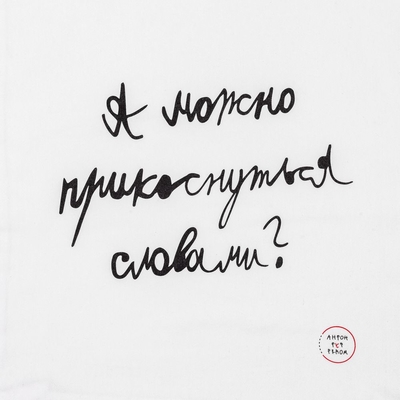 А можно
прикоснуться
словами?
АНТОН
ТУТ
РЯДОМ